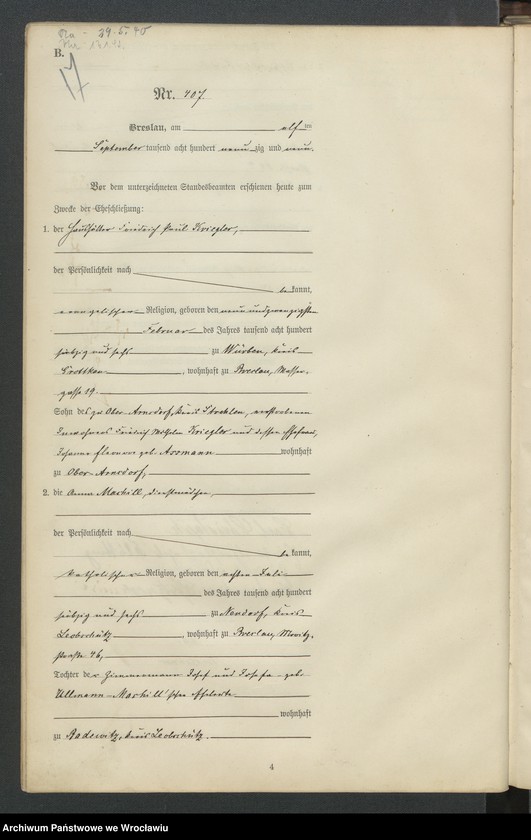 29.5.
B.
17
Nr. 407
Breslau, am elf ten
September tausend acht hundert neunzig und neun.
Vor dem unterzeichneten Standesbeamten erschienen heute zum
Zwecke der Eheschließung:
1. der Haushälter Friedrich Paul Kriegler,
der Persönlichkeit nach
bekannt,
evangelischer Religion, geboren den neunundzwanzigsten
Februar des Jahres tausend acht hundert
siebzig und sechs zu Würben, Kreis
Grottkau, wohnhaft zu Breslau, Wasser-
gasse 19.
Sohn des zu Ober-Arnsdorf, Kreis Strehlen, verstorbenen
Inwohners Friedrich Wilhelm Kriegler und dessen Ehefrau,
Johanne Eleonore geb. Assmann wohnhaft
zu Ober-Arnsdorf,
2. die Anna Maskill, Dienstmädchen,
der Persönlichkeit nach
bekannt,
katholischer Religion, geboren den achten Juli
des Jahres tausend acht hundert
siebzig und sechs zu Neudorf, Kreis
Leobschütz, wohnhaft zu Breslau, Moritz-
straße 46,
Tochter der Zimmermann Josef und Josefa geb.
Ullmann-Maskill'schen Eheleute
wohnhaft
zu Badewitz, Kreis Leobschütz.
4
Archiwum Państwowe we Wrocławiu